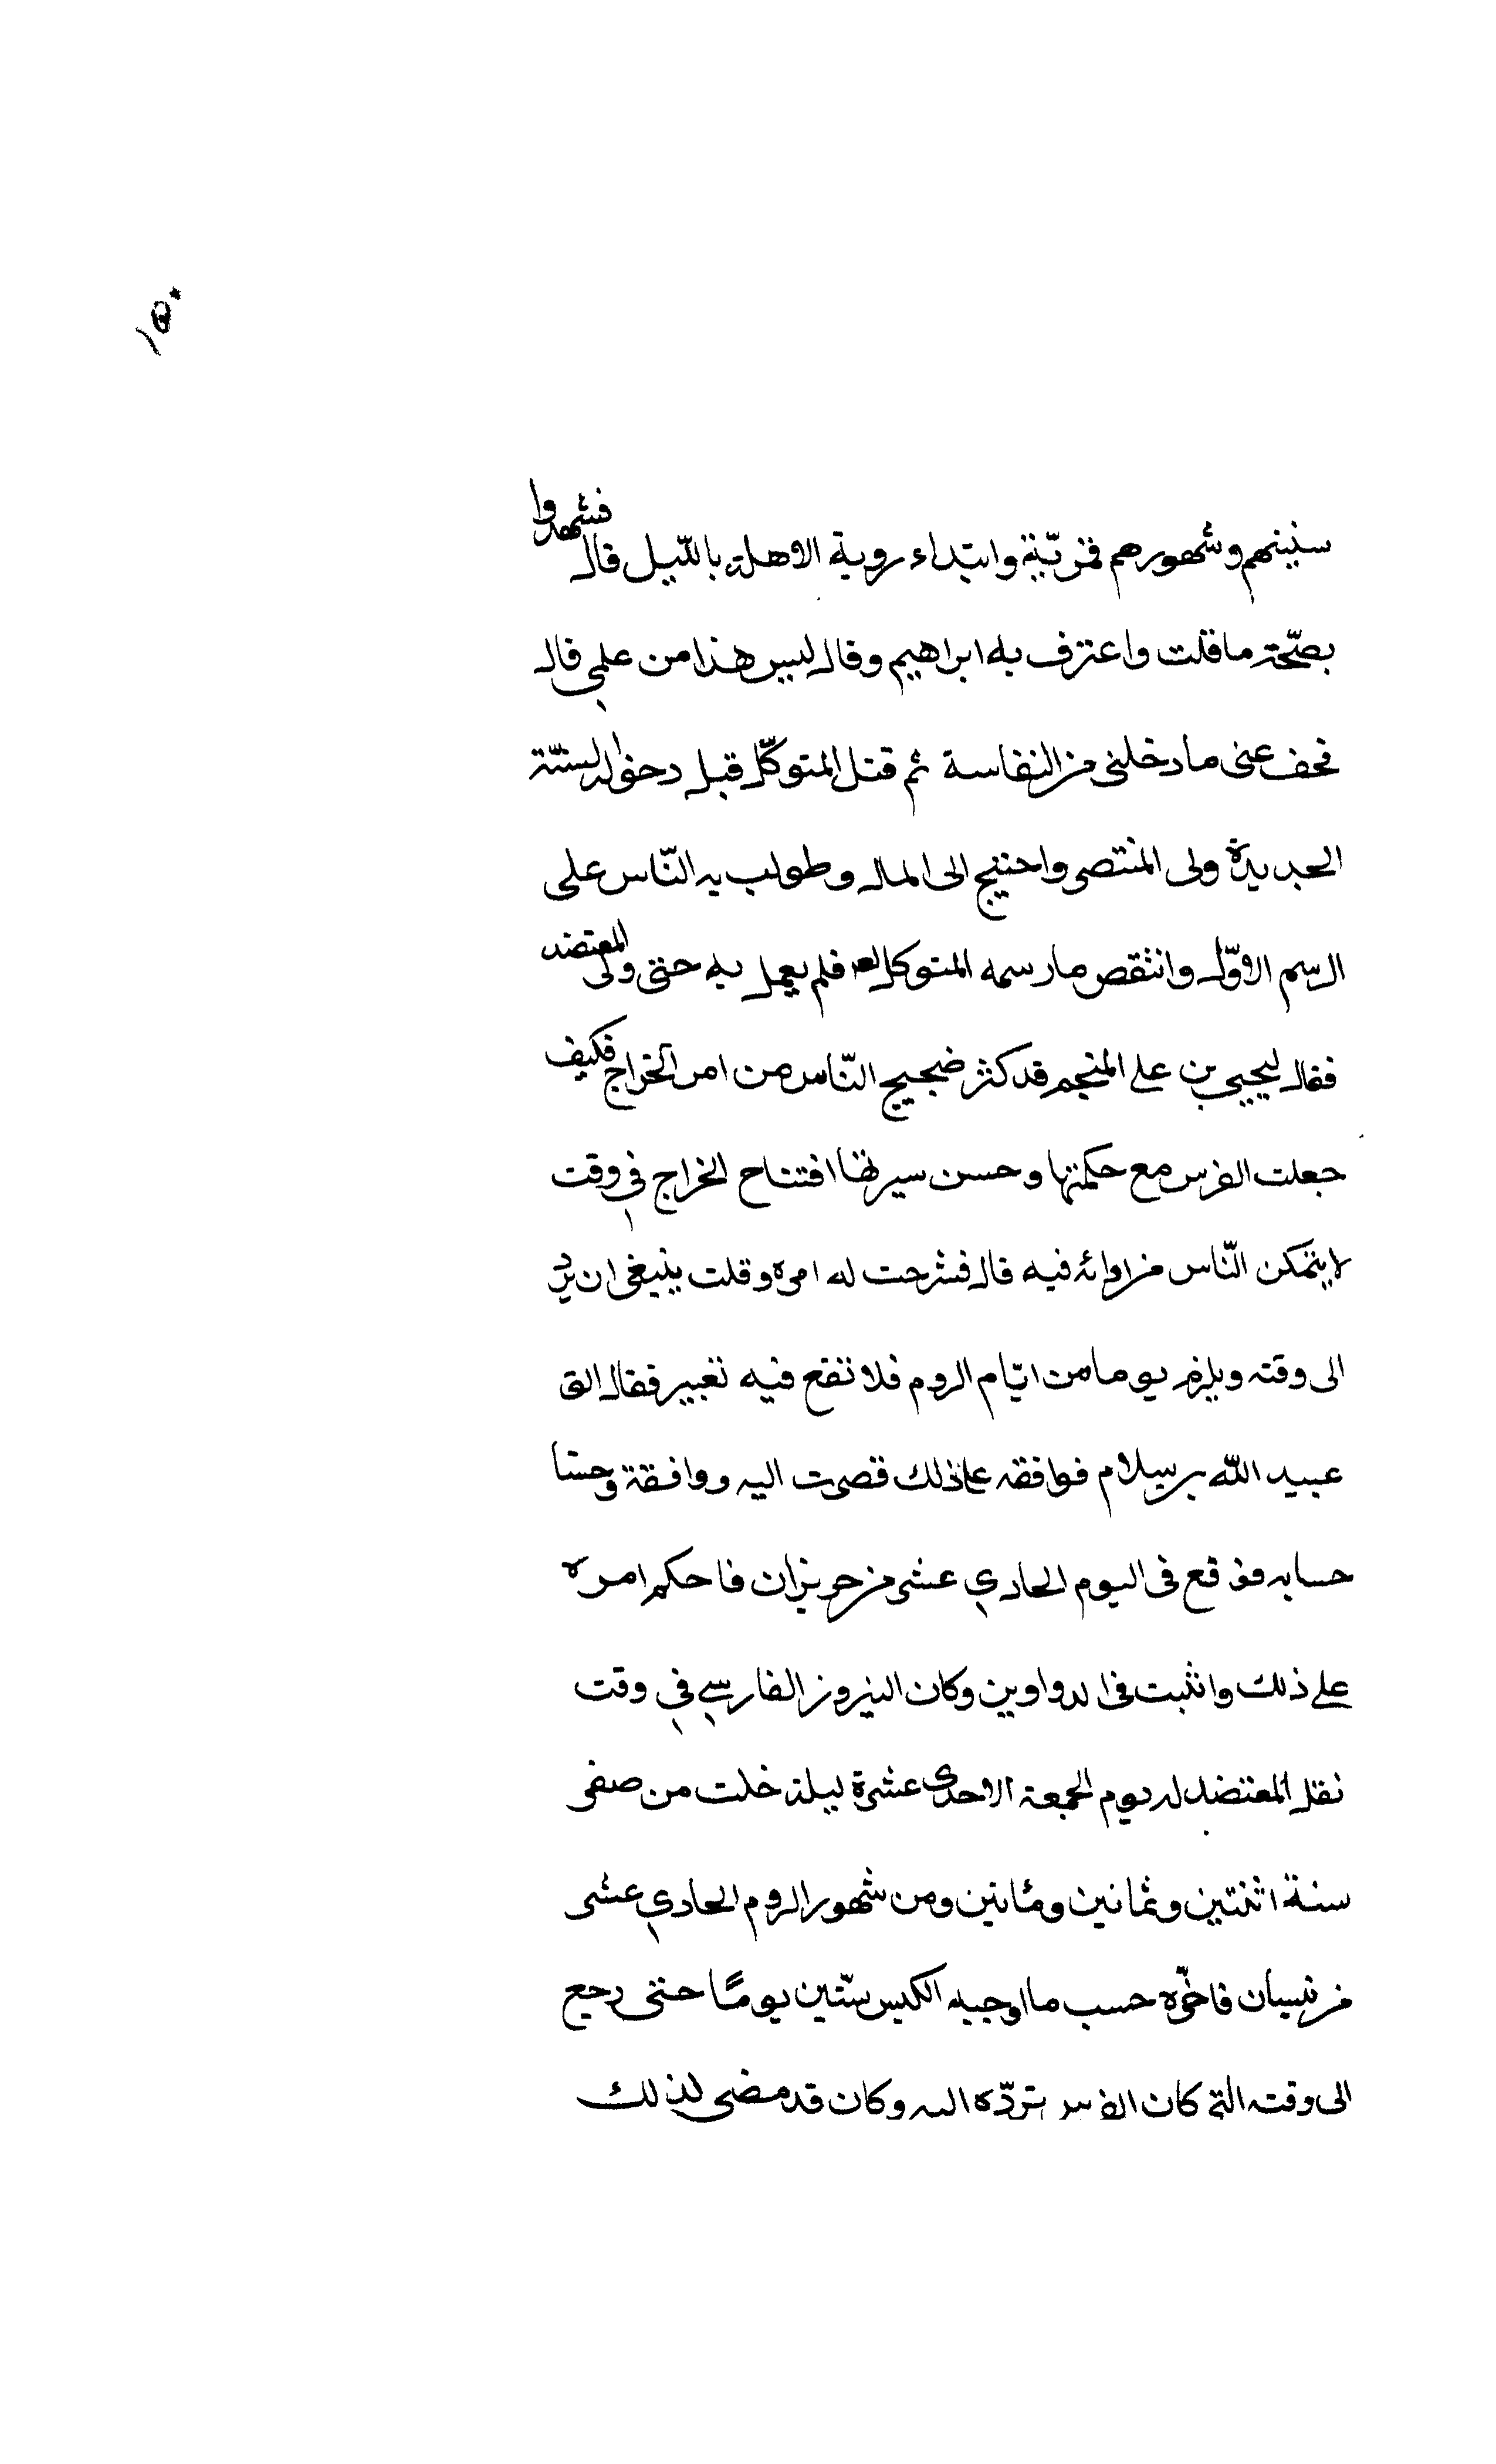 ١٥٠
سنينهم وشهورهم قمريّة وابتداء روية الاهلة بالليل قال فشهدوا
بصحّة ما قلت واعترف به ابراهيم وقال ليس هذا من علمي قال
فخف عنى ما دخلنى من النفاسة ثم قتل المتوكّل قبل دخول السنة
الجديدة وولى المنتصر واحتيج الى المال وطولب به النّاس على
الرسم الاوّل وانتقص ما رسمه المتوكل فلم يعمل به حتى ولى المعتضد
فقال ليحيى بن على المنجم قد كثر ضجيج النّاس من امر الخراج فكيف
جعلت الفرس مع حكمتها وحسن سيرتها افتتاح الخراج في وقت
لا يتمكن النّاس من ادائه فيه قال فشرحت له امره وقلت ينبغى ان يردّ
الى وقته ويلزم يوما من ايّام الروم فلا تقع فيه تغيير فقال الق
عبيد الله بن سلام فوافقه على ذلك فصرت اليه ووافقة وحسبنا
حسابه فوقع فى اليوم الحادي عشر من حزيران فاحكم امره
على ذلك واثبت فى الدواوين وكان النيروز الفارسي في وقت
نقل المعتضد له يوم الجمعة لاحدى عشرة ليلة خلت من صفر
سنة اثنتين وثمانين ومائتين ومن شهور الروم الحادي عشر
من نيسان فاخّره حسب ما اوجبه الكبس ستّين يومًا حتى رجع
الى وقته التى كان الفرس تردّه اليه وكان قد مضى لذلك